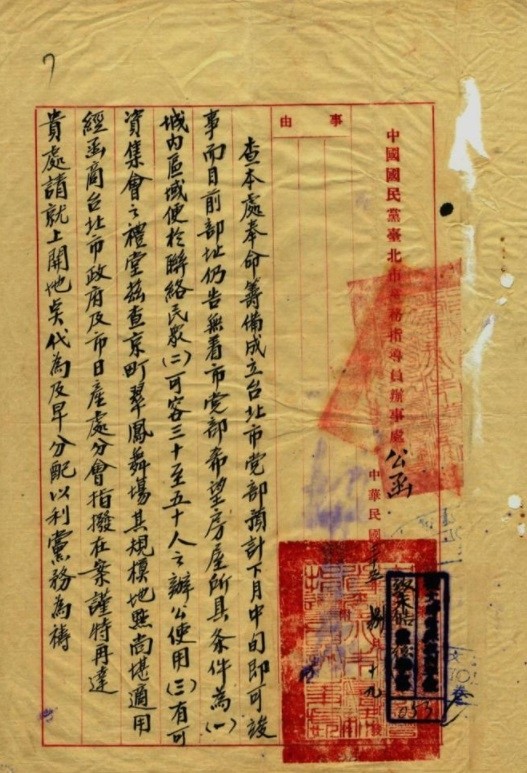 中國國民黨臺北市黨務指導員辦事處公函
中華民國
事由
查本處奉命籌備成立台北市党部預計下月中旬即可竣
事而目前部址仍告無着市党部希望房屋所具条件為(一)
城内區域便於聯絡民衆(二)可容三十至五十人之辦公使用(三)有可
資集會之禮堂茲查京町翠鳳舞場其規模地點尚堪適用
經函商台北市政府及市日產處分會指撥在案謹特再達
貴處請就上開地點代為及早分配以利黨務為禱